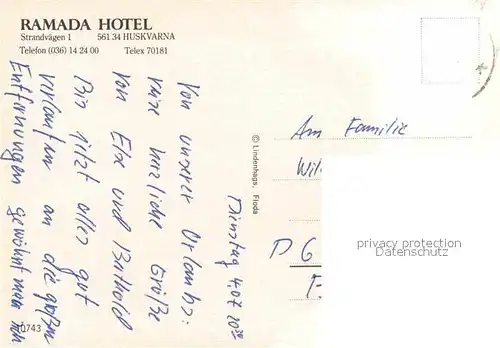 RAMADA HOTEL
Strandvägen 1 561 34 HUSKVARNA
Telefon (036) 14 24 00 Telex 70181
Dienstag 4.07 20³⁰
Von unserer Urlaubs:
reise herzliche Grüße
von Else und Berthold
Bis jetzt alles gut
verlaufen an die großen
Entfernungen gewöhnt man sich
© Lindenhags, Floda
An Familie
Wil
D 6
F-
privacy protection
Datenschutz
10743